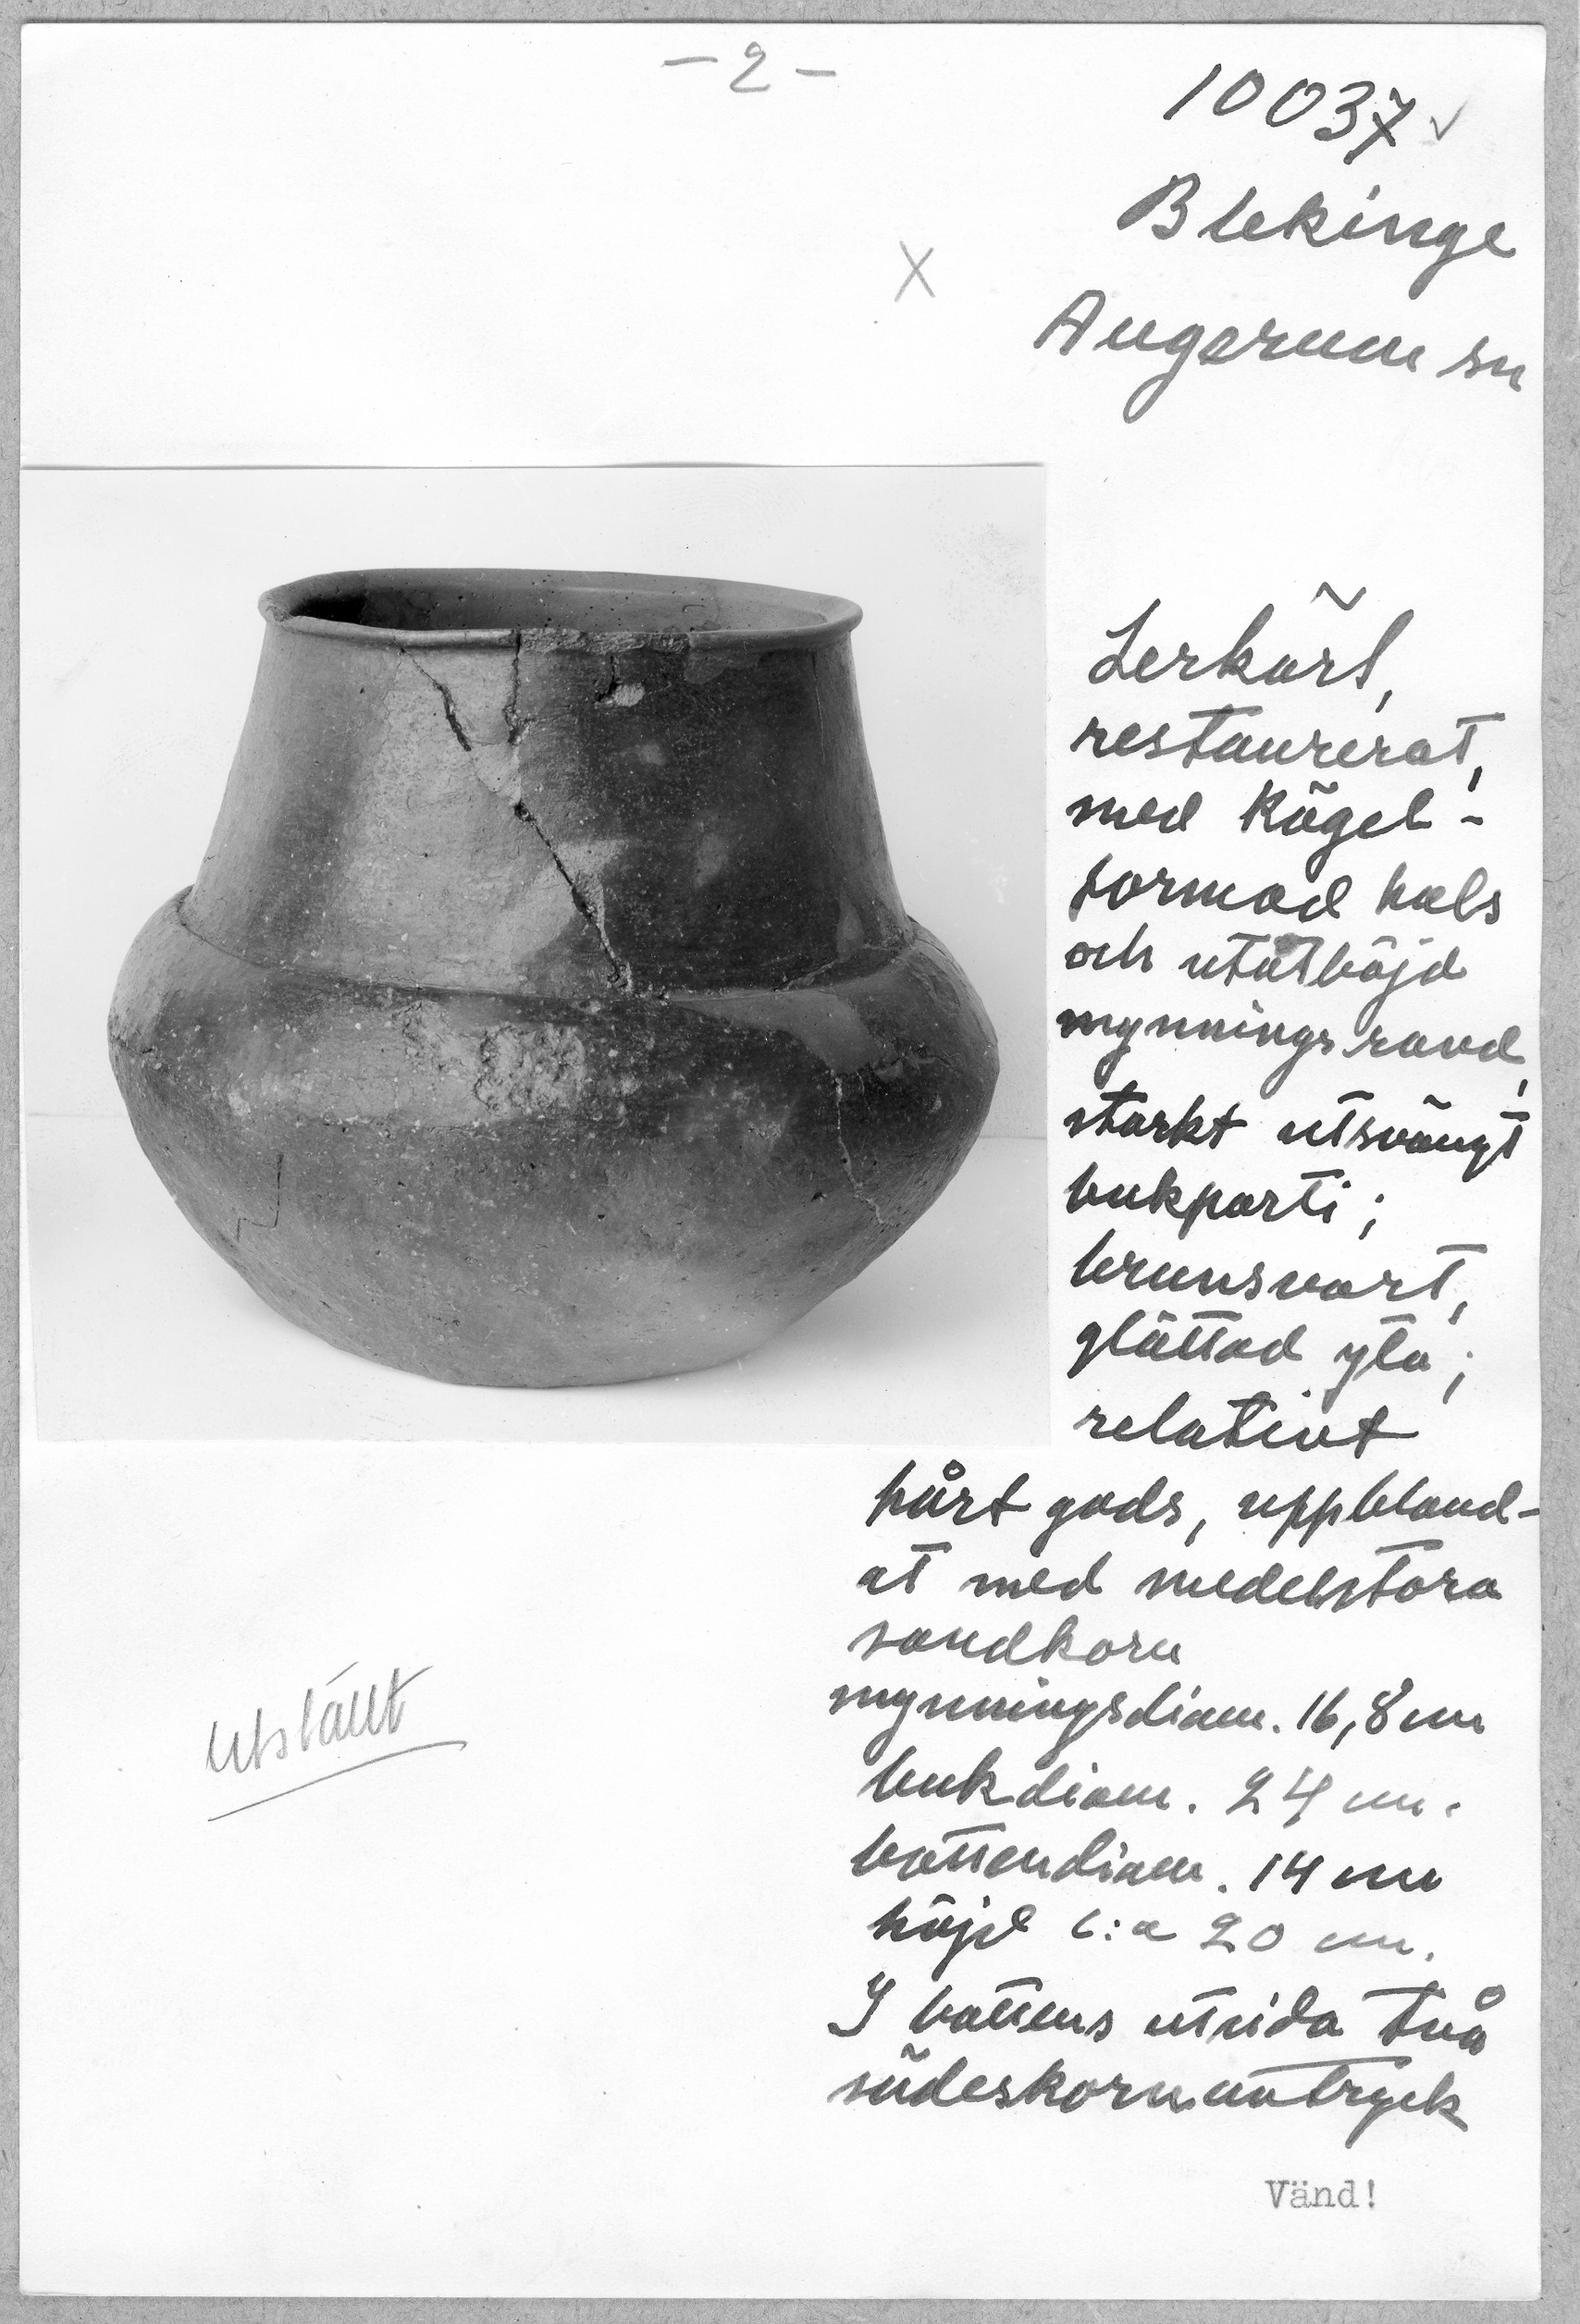 -2-
10037 ✓
Blekinge
X
Augerum sn
Lerkärl,
restaurerat,
med kägel-
formad hals
och utåtböjd
mynningsrand,
starkt utsvängt
bukparti;
brunsvart,
glättad yta;
relativt
hårt gods, uppbland-
at med medelstora
sandkorn
mynningsdiam. 16,8 cm
bukdiam. 24 cm.
bottendiam. 14 cm
höjd c:a 20 cm.
I bottens utsida två
sädeskornsavtryck
utställt
Vänd!